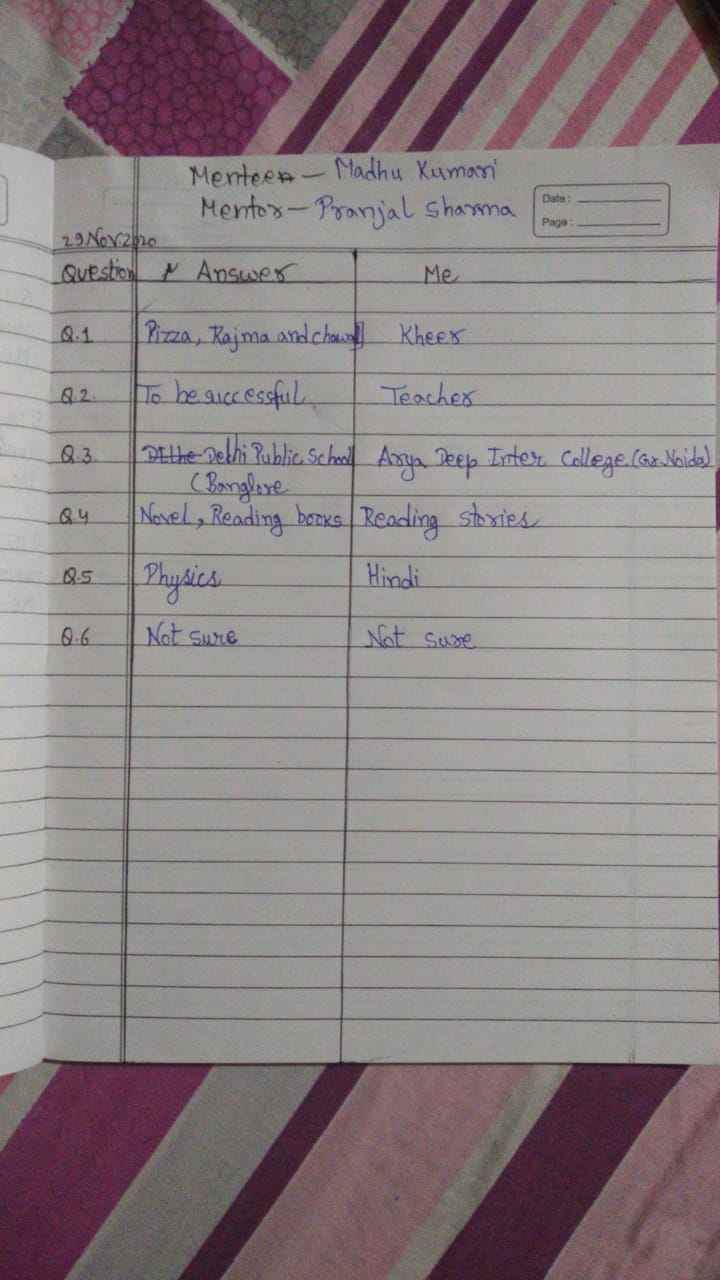 Menteer — Madhu Kumari
Mentor — Pranjal Sharma
Date :
Page :
29 Nov 2020
Question Answer Me
Q.1 Pizza, Rajma and chawal Kheer
Q.2. To be successful Teacher
Q.3. Delhi Public School Arya Deep Inter College.(Gr.Noida)
(Banglore
Q.4 Novel, Reading books Reading stories
Q.5 Physics Hindi
Q.6 Not sure Not sure